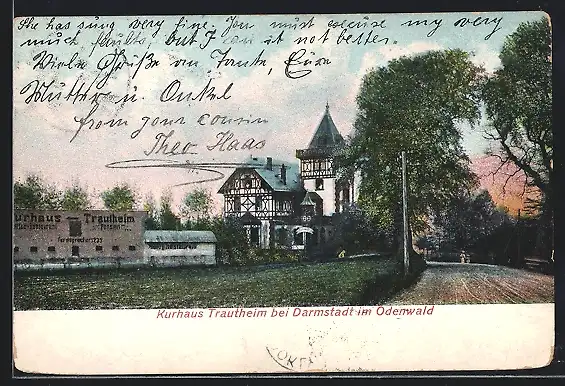 She has sung very fine. You must excuse my very
much faults, but I can it not better.
Viele Grüße an Tante, Eure
Mutter u. Onkel
from your cousin
Theo Haas
Kurhaus Trautheim
Kurhaus Trautheim bei Darmstadt im Odenwald